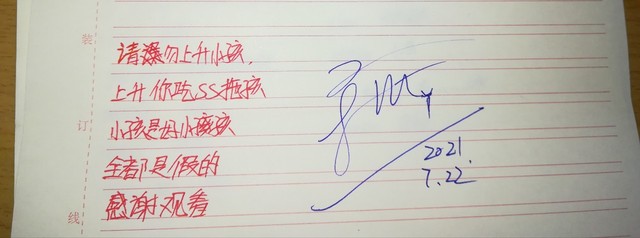 装
订
线
请瀑勿上升小孩,
上升你吃SS拖孩
小孩是母小孩孩
全都是假的
感谢观看
2021.
7.22